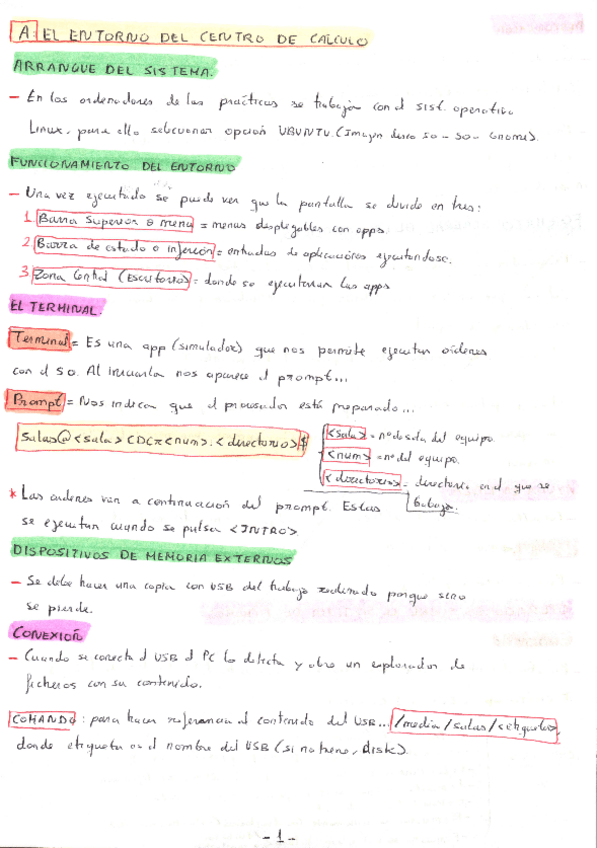 A: EL ENTORNO DEL CENTRO DE CALCULO
ARRANQUE DEL SISTEMA.
- En los ordenadores de las prácticas se trabaja con el sist. operativo
Linux, para ello seleccionar opción UBUNTU. (Imagen disco so - so - Gnome).
FUNCIONAMIENTO DEL ENTORNO
- Una vez ejecutado se puede ver que la pantalla se divide en tres:
1 Barra superior o menú = menus desplegables con apps.
2 Barra de estado o inferior = entradas de aplicaciones ejecutandose.
3 Zona Central (Escritorio) = donde se ejecutan las apps
EL TERMINAL.
Terminal = Es una app (simulador) que nos permite ejecutar ordenes
con el SO. Al iniciarla nos aparece el prompt...
Prompt = Nos indica que el procesador está preparado...
salas@<sala>CDC<num>:<directorio>$
<sala> = nº de sala del equipo.
<num> = nº del equipo.
<directorio> = directorio en el que se
trabaja.
* Las ordenes van a continuación del prompt. Estas
se ejecutan cuando se pulsa <INTRO>.
DISPOSITIVOS DE MEMORIA EXTERNOS
- Se debe hacer una copia con USB del trabajo realizado porque sino
se pierde.
CONEXIÓN
- Cuando se conecta el USB el PC lo detecta y abre un explorador de
ficheros con su contenido.
COMANDO: para hacer referencia al contenido del USB... /media/salas/<etiqueta>,
donde etiqueta es el nombre del USB (si no tiene, disk).
- 1 -